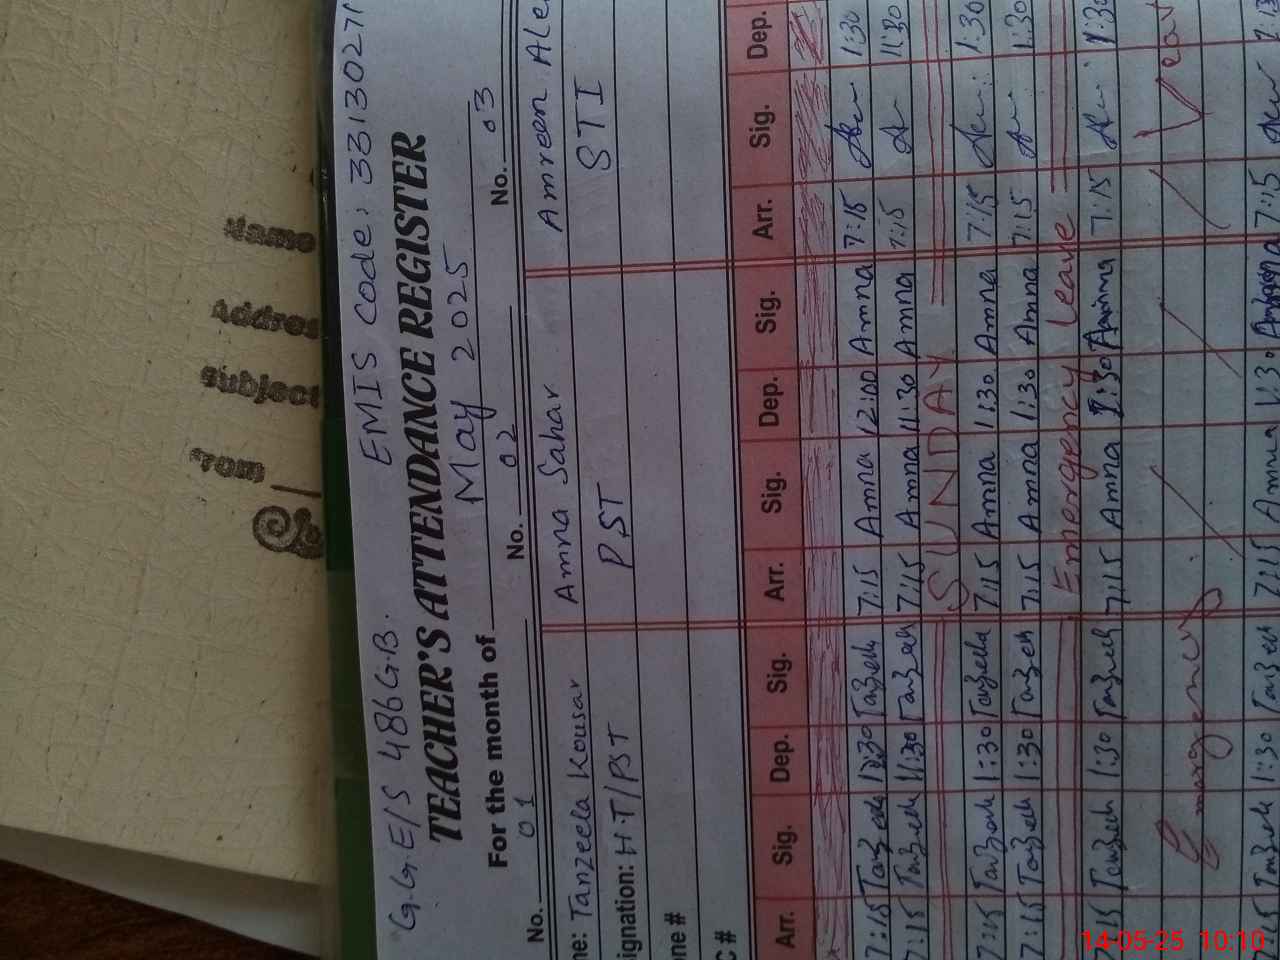 G.G.E/S 486 G.B. EMIS Code: 33130271
TEACHER'S ATTENDANCE REGISTER
For the month of May 2025
No. 01 No. 02 No. 03
ne: Tanzeela Kousar Amna Sahar Amreen Ale
signation: H.T/PST PST STI
one #
C #
Arr. Sig. Dep. Sig. Arr. Sig. Dep. Sig. Arr. Sig. Dep.
7:15 Tanzeela Tanzeela 7:15 Amna 12:00 Amna 7:15 1:30
7:15 Tanzeela 11:30 Tanzeela 7:15 Amna 11:30 Amna 7:15 11:30
SUNDAY
7:15 Tanzeela 1:30 Tanzeela 7:15 Amna 1:30 Amna 7:15 1:30
7:15 Tanzeela 1:30 Tanzeela 7:15 Amna 1:30 Amna 7:15 1:30
Emergency Leave
7:15 Tanzeela 1:30 Tanzeela 7:15 Amna 1:30 Amna 7:15 1:30
Emargency Leav
7:15 Tanzeela 1:30 Tanzeela 7:15 Amna 1:30 Amna 7:15
Name
Addres
Subject
From
14-05-25 10:10